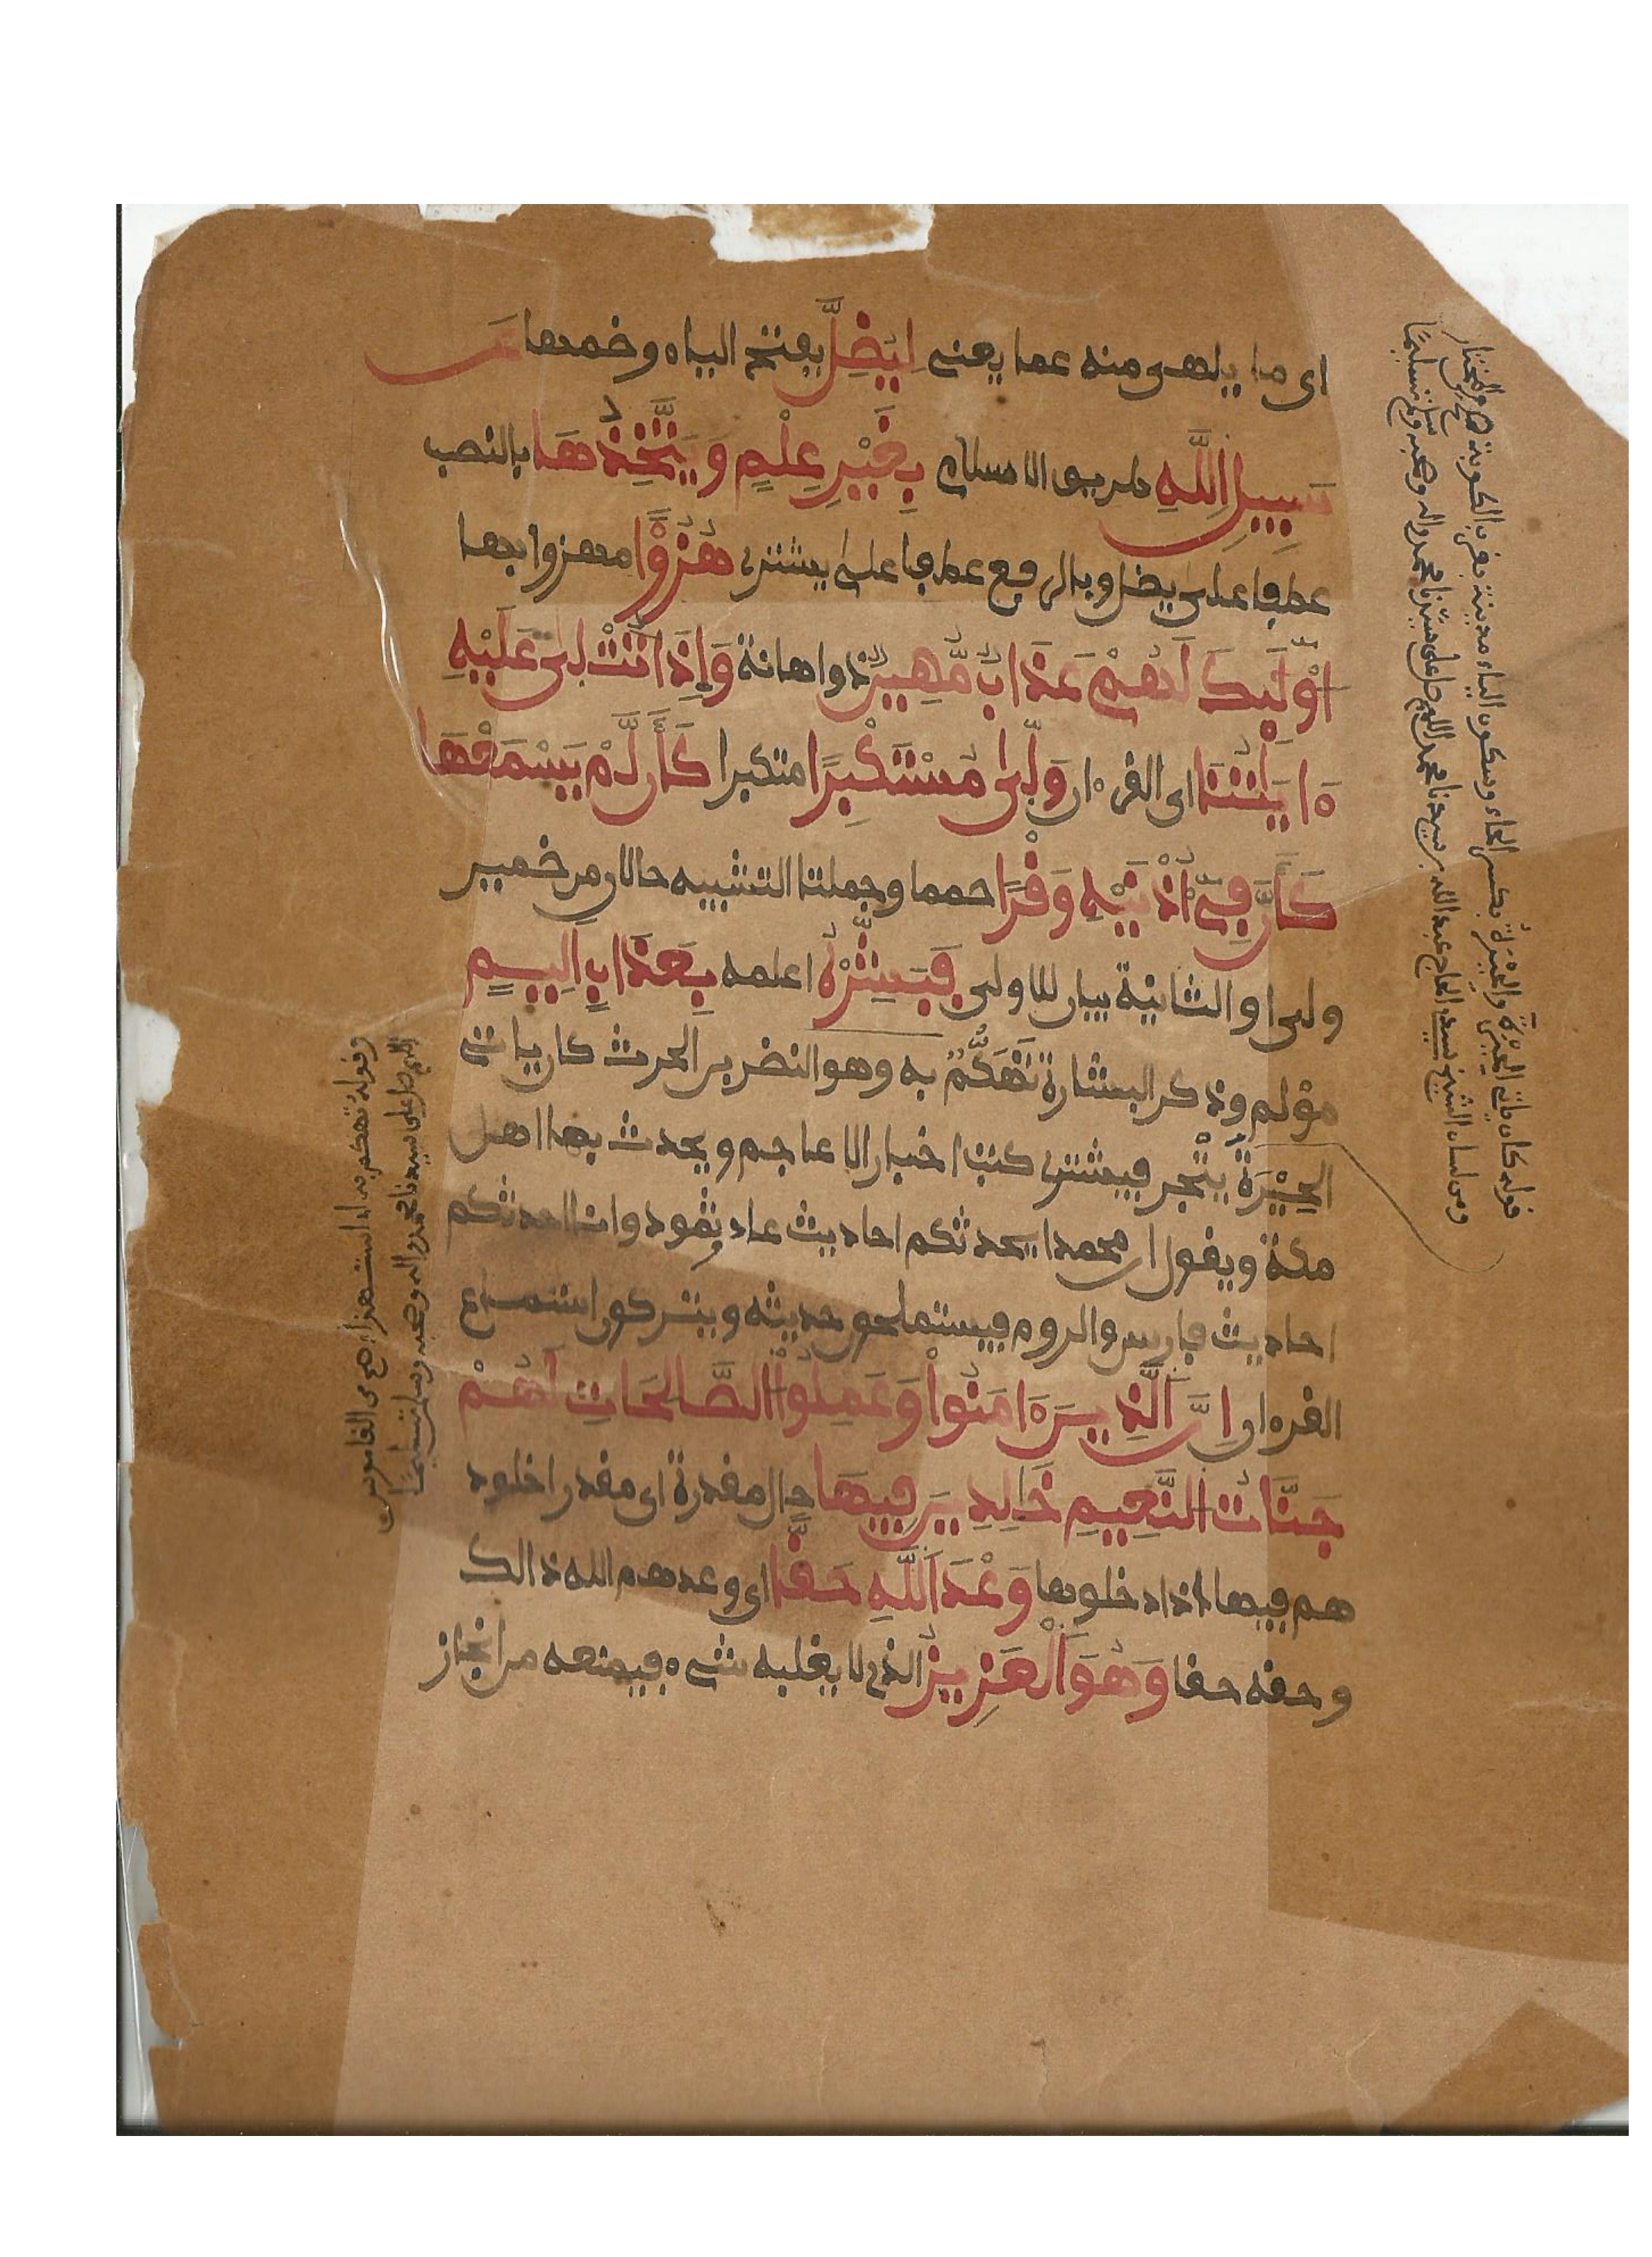 اى ما يلهى منه عما يعنى لِيَضِلَّ بفتح الياء وضمها عَن
سَبِيلِ اللَّهِ طريق الاسلام بِغَيْرِ عِلْمٍ وَيَتَّخِذُهَا بالنصب
عطفا على يضل وبالرفع عطفا على يشترى هُزُؤًا مهزوا بها
أُوْلَٰئِكَ لَهُمْ عَذَابٌ مُّهِينٌ ذو اهانة وَإِذَا تُتْلَىٰ عَلَيْهِ
ءَايَٰتُنَا اى القرءان وَلَّىٰ مُسْتَكْبِرًا متكبرا كَأَن لَّمْ يَسْمَعْهَا
كَأَنَّ فِىٓ أُذْنَيْهِ وَقْرًا صمما وجملتا التشبيه حالان من ضمير
ولى او الثانية بيان للاولى فَبَشِّرْهُ اعلمه بِعَذَابٍ اَلِيمٍ
مؤلم وذكر البشارة تَهَكُّمٌ به وهو النضر بن الحرث كان ياتى
الحِيْرَةَ يتْجر فيشترى كتب اخبار الاعاجم ويحدث بها اهل
مكة ويقول ان محمدا يحدثكم احاديث عاد وثمود وانا احدثكم
احاديث فارس والروم فيستملحون حديثه ويتركون استماع
القرءان اِنَّ اَلَّذِينَ ءَامَنُواْ وَعَمِلُواْ الصَّالِحَاتِ لَهُمْ
جَنَّاتُ النَّعِيمِ خَالِدِينَ فِيهَا حال مقدرة اى مقدرا خلود
هم فيها اذا دخلوها وَعْدَ اَللَّهِ حَقًّا اى وعدهم الله ذالك
وحقه حقا وَهُوَ اَلْعَزِيزُ الذى لا يغلبه شىء فيمنعه من انجاز
قوله كان ياتى الحِيْرَةَ والحِيْرَة بكسر الحاء وسكون الياء مدينة بقرب الكوفة
ومن لسان الشيخ سيد الحاج عبد الله بن سيدنا محمد اللهم صل على سيدنا محمد واله وصحبه وسلم تسليما
وقوله تهكم به اى استهزاء به من القاموس
اللهم صل على سيدنا محمد واله وصحبه وسلم تسليما